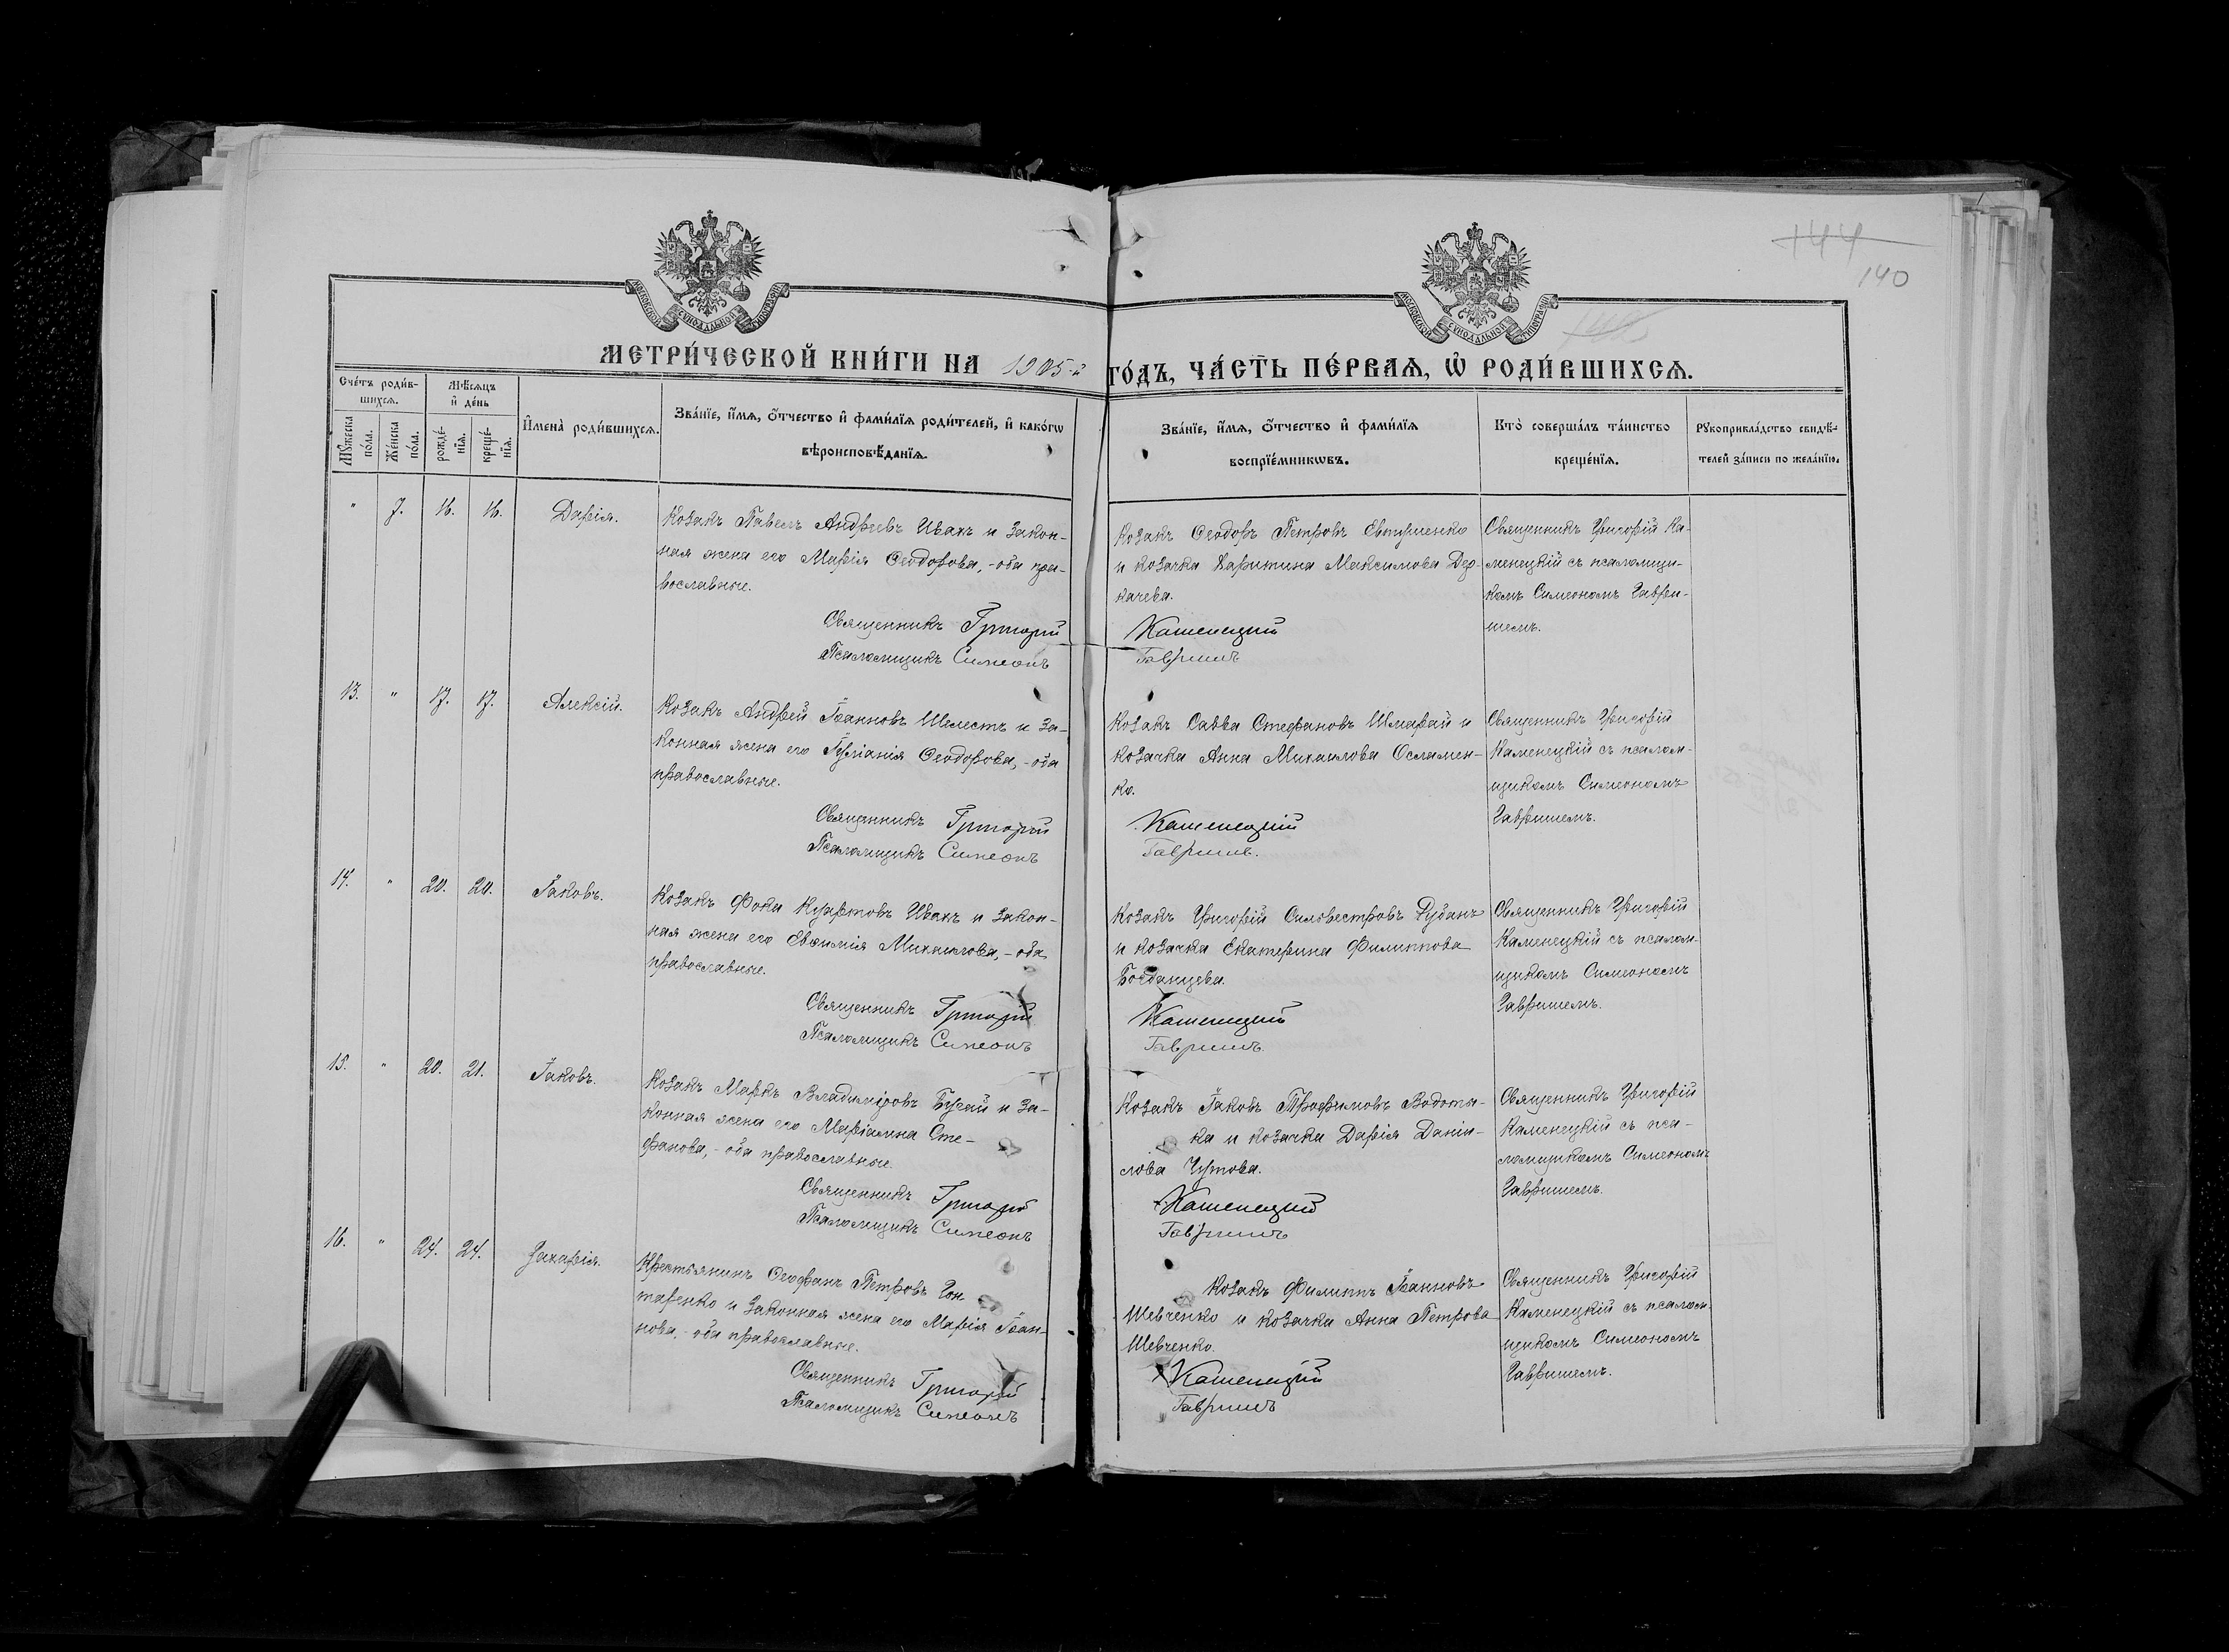 144
140
МОСКОВСКОЙ СѴНОДАЛЬНОЙ ТИПОГРАФІИ
МОСКОВСКОЙ СѴНОДАЛЬНОЙ ТИПОГРАФІИ
МЕТРИ́ЧЕСКОЙ КНИ́ГИ НА 1905-й ГО́ДЪ, ЧА́СТЬ ПЕ́РВАѦ, Ѡ҆ РОДИ́ВШИХСѦ.
Сче́тъ роди́в-
шихсѧ.
Мꙋ́жеска по́ла.
Же́нска по́ла.
Мѣ́сѧцъ
и҆ де́нь
рожде́-
нїѧ.
креще́-
нїѧ.
И҆мена̀ роди́вшихсѧ.
Зва́нїе, и҆́мѧ, ѻ҆́тчество и҆ фами́лїѧ роди́телей, и҆ како́гѡ
вѣроисповѣ́данїѧ.
Зва́нїе, и҆́мѧ, ѻ҆́тчество и҆ фами́лїѧ
воспрїе́мникѡвъ.
Кто̀ соверша́лъ та́инство
креще́нїѧ.
Рꙋкоприкла́дство свидѣ́-
телей за́писи по жела́нїю.
" 7. 16. 16. Дарія.
Козакъ Павелъ Андреевъ Ивах и закон-
ная жена его Марія Ѳеодорова, - оба пра-
вославные.
Священникъ Григорій
Псаломщикъ Симеонъ
Козакъ Ѳеодоръ Петровъ Евтушенко
и козачка Харитина Максимова Дер-
качева.
Каменецкій
Гавришъ
Священникъ Григорій Ка-
менецкій съ псаломщи-
комъ Симеономъ Гаври-
шемъ.
13. " 17. 17. Алексій.
Козакъ Андрей Іоанновъ Шелестъ и за-
конная жена его Іуліанія Ѳеодорова, - оба
православные.
Священникъ Григорій
Псаломщикъ Симеонъ
Козакъ Савва Стефановъ Шмарай и
козачка Анна Михаилова Осламен-
ко.
Каменецкій
Гавришъ.
Священникъ Григорій
Каменецкій съ псалом-
щикомъ Симеономъ
Гавришемъ.
14. " 20. 20. Іаковъ.
Козакъ Фока Куартовъ Ивах и закон-
ная жена его Евфимія Михаилова, - оба
православные.
Священникъ Григорій
Псаломщикъ Симеонъ
Козакъ Григорій Сильвестровъ Рубанъ
и козачка Екатерина Филиппова
Богданцева.
Каменецкій
Гавришъ.
Священникъ Григорій
Каменецкій съ псалом-
щикомъ Симеономъ
Гавришемъ.
15. " 20. 21. Іаковъ.
Козакъ Маркъ Владиміровъ Бугай и за-
конная жена его Маріамна Сте-
фанова, - оба православные.
Священникъ Григорій
Псаломщикъ Симеонъ
Козакъ Іаковъ Трофимовъ Водоты-
ка и козачка Дарія Даніи-
лова Чутова.
Каменецкій
Гавришъ
Священникъ Григорій
Каменецкій съ пса-
ломщикомъ Симеономъ
Гавришемъ.
16. " 24. 24. Захарія.
Крестьянинъ Ѳеофанъ Петровъ Гон
таренко и законная жена его Марія Іоан-
нова, - оба православные.
Священникъ Григорій
Псаломщикъ Симеонъ
Козакъ Филиппъ Іоанновъ
Шевченко и козачка Анна Петрова
Шевченко.
Каменецкій
Гавришъ
Священникъ Григорій
Каменецкій съ псалом-
щикомъ Симеономъ
Гавришемъ.